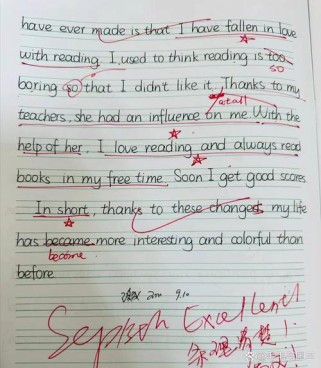 have ever made is that I have fallen in love
with reading. I used to think reading is too
so
boring so that I didn't like it. Thanks to my
at all
teachers, she had an influence on me. With the
help of her, I love reading and always read
books in my free time. Soon I get good scores
In short, thanks to these changes, my life
has became more interesting and colorful than
become
before
9.10
Excellent